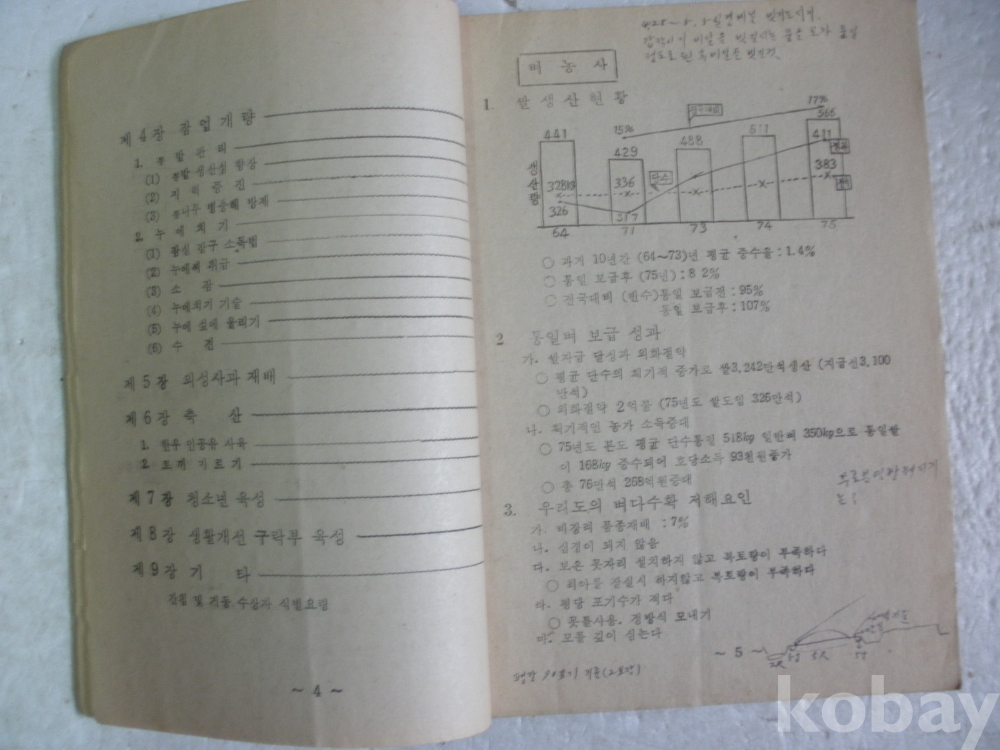 제4장 잠업개량
1. 뽕밭관리
(1) 뽕밭 생산성 향상
(2) 지력증진
(3) 뽕나무 병충해 방제
2. 누에치기
(1) 잠실 잠구 소독법
(2) 누에떨 취급
(3) 소 잠
(4) 누에치기 기술
(5) 누에 섶에 올리기
(6) 수 견
제5장 의성사과 재배
제6장 축 산
1. 한우 인공유 사육
2. 토끼 기르기
제7장 청소년 육성
제8장 생활개선 구락부 육성
제9장 기 타
간첩 및 거동 수상자 식별요령
~ 4 ~
벼 농 사
1. 쌀생산현황
생산량
441
429
488
511
566
15%
17%
411
383
336
326
317
64
71
73
74
75
○ 과거 10년간 (64~73)년 평균 증수율 : 1.4%
○ 통일 보급후 (75년) : 8 2%
○ 전국대비 (반수)통일 보급전 : 95%
통일 보급후 : 107%
2 통일벼 보급 성과
가. 쌀자급 달성과 외화절약
○ 평균 단수의 획기적 증가로 쌀3,242만석생산 (자급선3,100
만석)
○ 외화절약 2억불 (75년도 쌀도입 326만석)
나. 획기적인 농가 소득증대
○ 75년도 본도 평균 단수통일 518kg 일반벼 350kg으로 통일쌀
이 168kg 증수되어 호당소득 93천원증가
○ 총 76만석 258억원증대
3. 우리도의 벼다수확 저해요인
가. 비장려 품종재배 : 7%
나. 심경이 되지 않음
다. 보온 못자리 설치하지 않고 복토량이 부족하다
○ 피아를 잘실시 하지않고 복토량이 부족하다
라. 평당 포기수가 적다
○ 못줄사용, 정방식 모내기
마. 모를 깊이 심는다
~ 5 ~
kobay